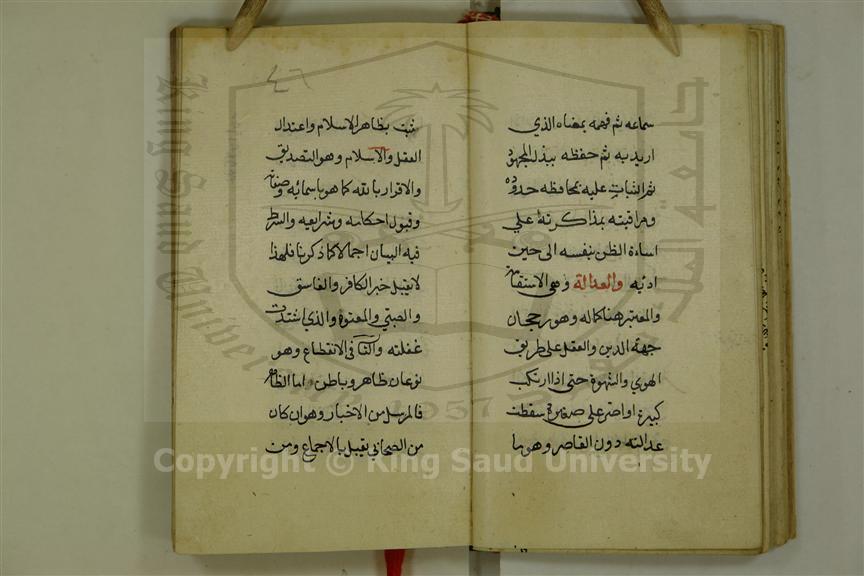 سماعه ثم فهمه بمعناه الذي
اريد به ثم حفظه ببذل المجهود
ثم الثبات عليه بمحافظة حدوده
ومراقبته بمذاكرته علي
اساءة الظن بنفسه الى حين
ادئه والعدالة وهي الاستقامة
والمعتبر هنا كماله وهو رجحان
جهة الدين والعقل على طريق
الهوي والشهوة حتى اذا ارتكب
كبيرة او اصر على صغيرة سقطت
عدالته دون القاصر وهو ما
٤٦
ثبت بظاهر الاسلام واعتدال
العقل والاسلام وهو التصديق
والاقرار بالله كما هو باسمائه وصفاته
وقبول احكامه وشرايعه والشرط
فيه البيان اجمالا كما ذكرنا فلهذا
لا يقبل خبر الكافر والفاسق
والصبي والمعتوه والذي اشتدت
غفلته والثاني في الانقطاع وهو
نوعان ظاهر وباطن اما الظاهر
فالمرسل من الاخبار وهو ان كان
من الصحابي يقبل بالاجماع ومن
King Saud University
جامعة الملك سعود
1957
Copyright © King Saud University